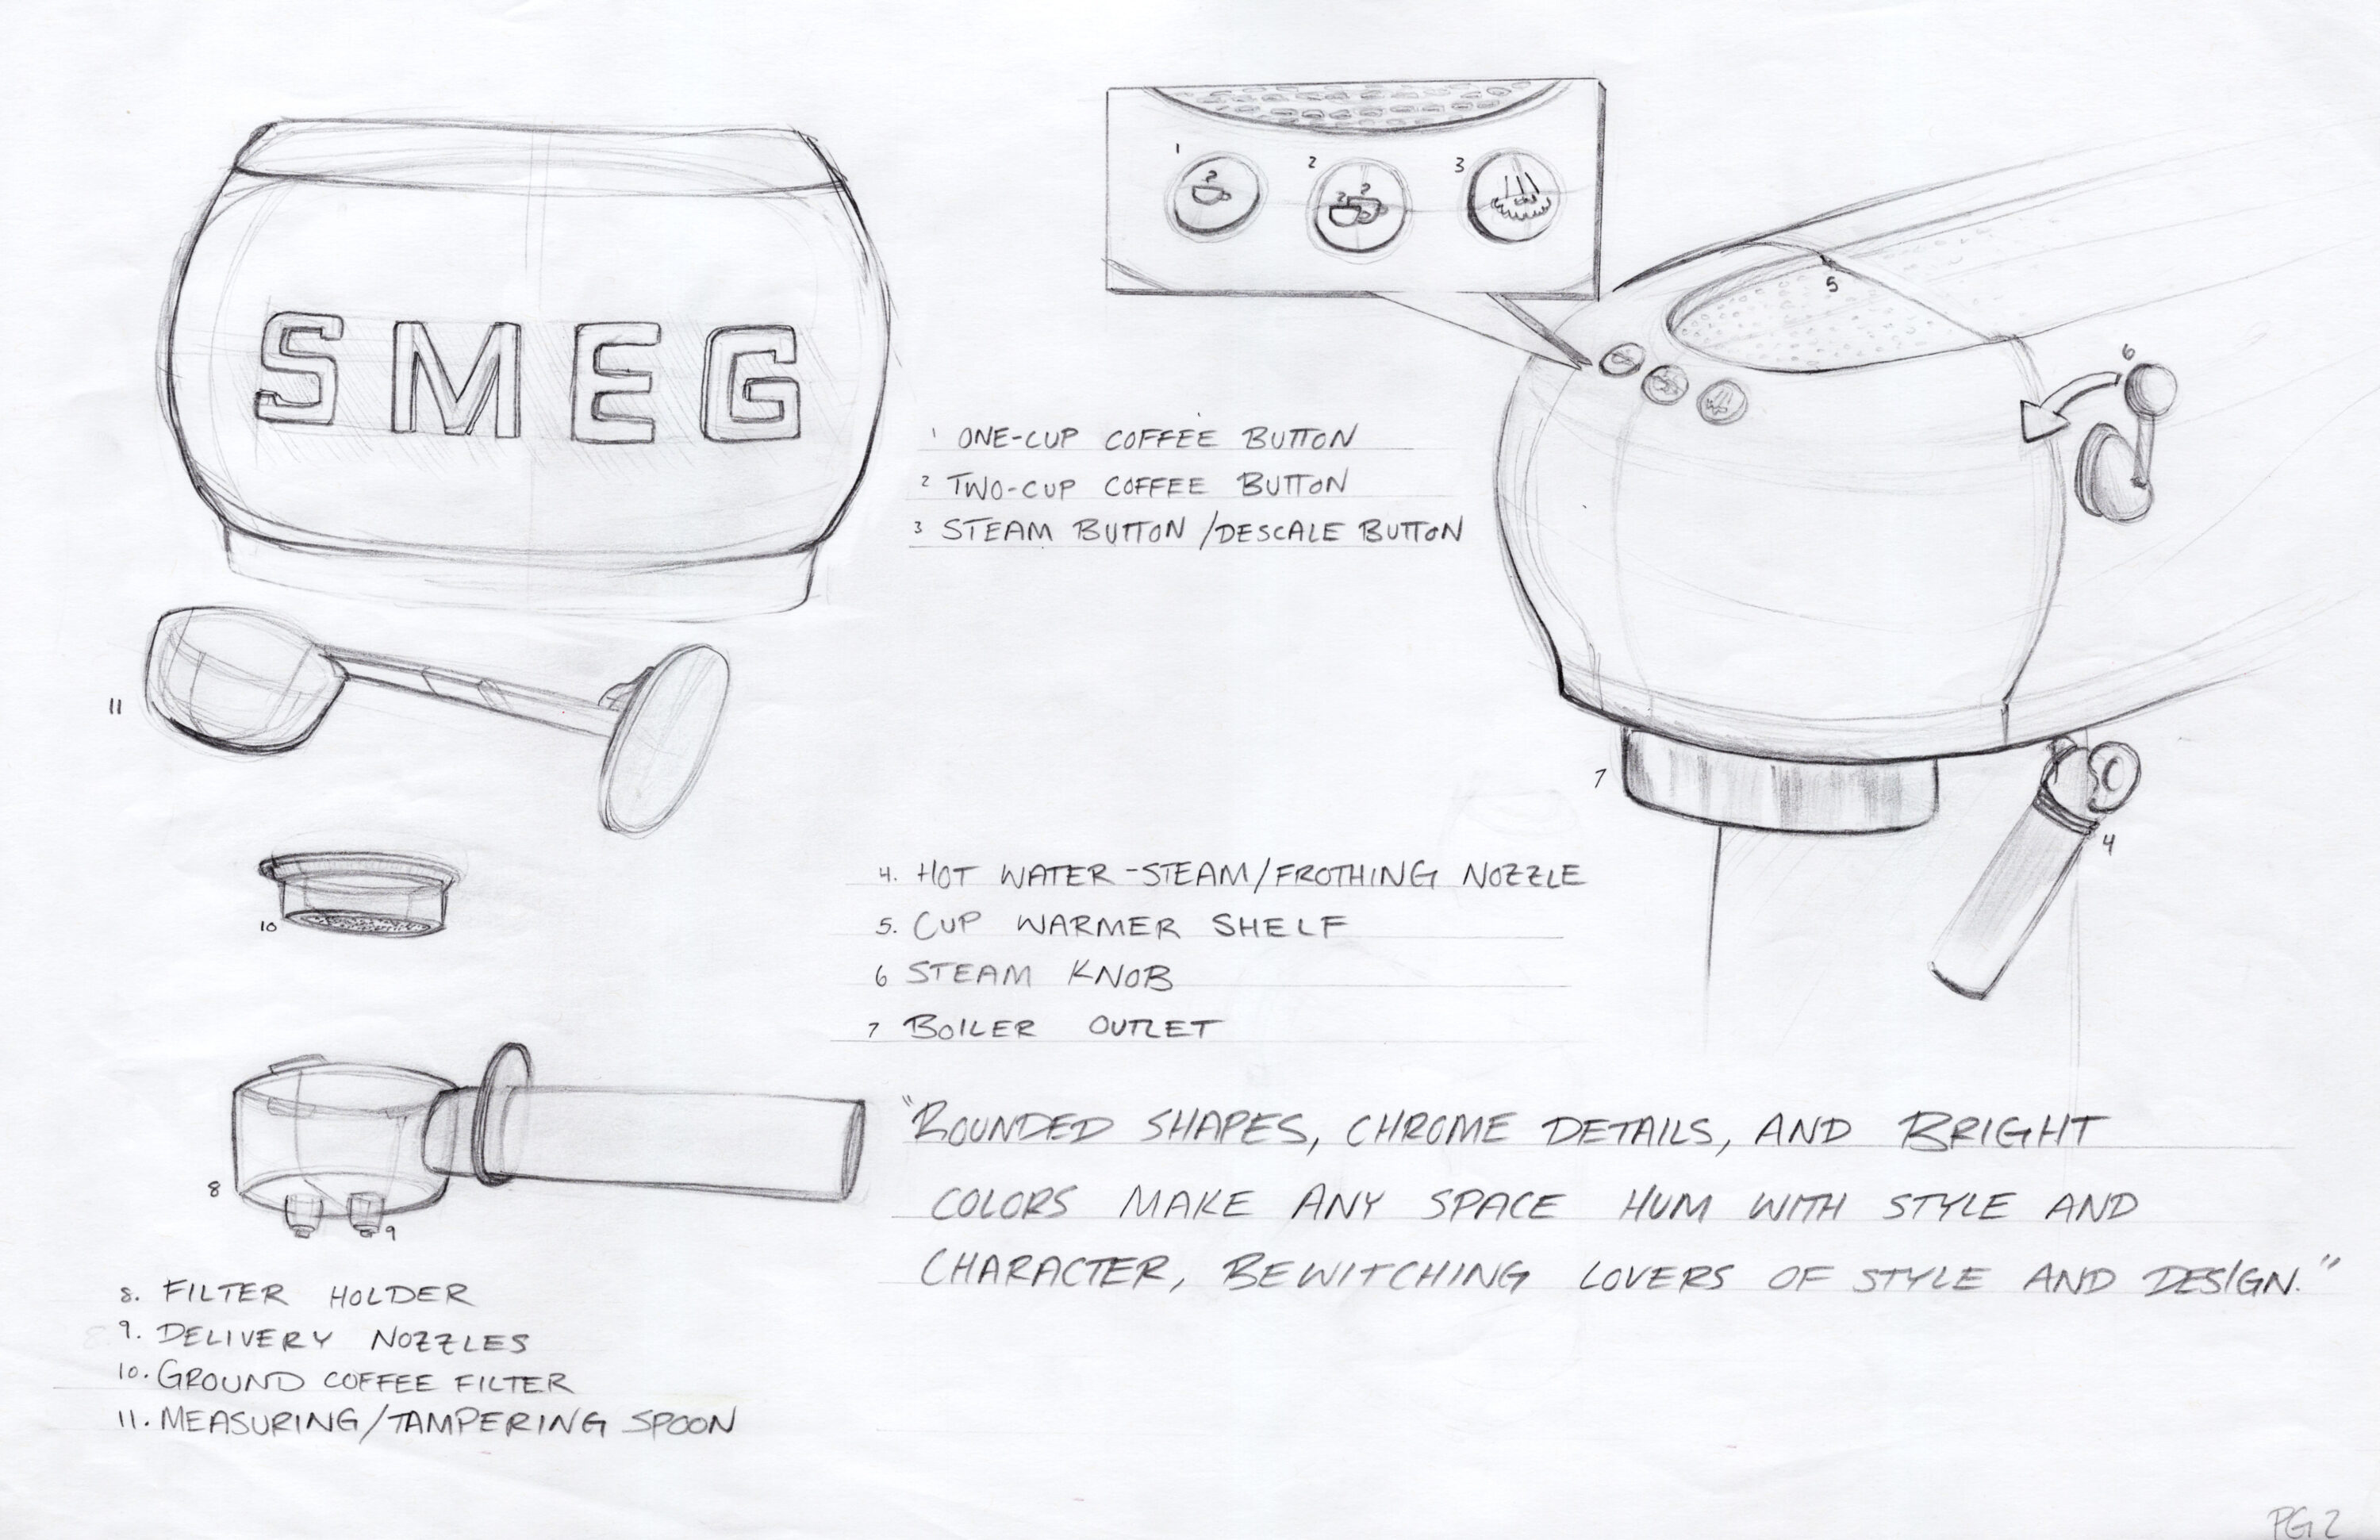 SMEG
1 2 3
5
6
1 ONE-CUP COFFEE BUTTON
2 TWO-CUP COFFEE BUTTON
3 STEAM BUTTON /DESCALE BUTTON
11
7
4
4. HOT WATER-STEAM/FROTHING NOZZLE
5. CUP WARMER SHELF
6 STEAM KNOB
7 BOILER OUTLET
10
8
9
"ROUNDED SHAPES, CHROME DETAILS, AND BRIGHT
COLORS MAKE ANY SPACE HUM WITH STYLE AND
CHARACTER, BEWITCHING LOVERS OF STYLE AND DESIGN."
8. FILTER HOLDER
9. DELIVERY NOZZLES
10. GROUND COFFEE FILTER
11. MEASURING/TAMPERING SPOON
PG 2